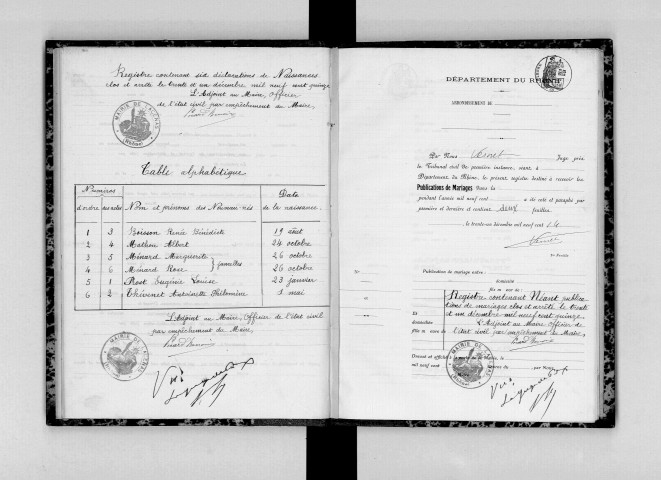 Registre contenant six déclarations de Naissances
clos et arrêté le trente et un décembre mil neuf cent quinze
L'Adjoint au Maire, Officier
de l'état civil par empêchement du Maire,
MAIRIE DE
(Rhône)
Table alphabétique
Numéros
d'ordre des actes Nom et prénoms des Nouveau-nés
Date de la naissance
1 3 Boisson Renée Bénédicte 19 août
2 4 Mathieu Albert 24 octobre
3 5 Minard Marguerite } jumelles 26 octobre
4 6 Minard Rose 26 octobre
5 1 Rost Eugénie Louise 23 janvier
6 2 Thévenet Antoinette Philomène 1 mai
L'Adjoint au Maire, Officier de l'état civil
par empêchement du Maire,
MAIRIE DE
Vu
DÉPARTEMENT DU RHÔNE
ARRONDISSEMENT DE
Par Nous Juge près
le Tribunal civil de première instance, séant à
Département du Rhône, le présent registre destiné à recevoir les
Publications de Mariages dans la
pendant l'année mil neuf cent a été coté et paraphé par
première et dernière et contient deux feuilles.
le trente-un décembre mil neuf cent 14
Publication de mariage entre :
domicilié
fils de
Registre contenant Néant publica
tions de mariages clos et arrêté le trente
Et et un décembre mil neuf cent quinze
domiciliée L'Adjoint au Maire officier de
fille l'état civil par empêchement du Maire,
Dressé et affiché
mil neuf cent heures du , par Nous
MAIRIE DE
(Rhône)
Vu